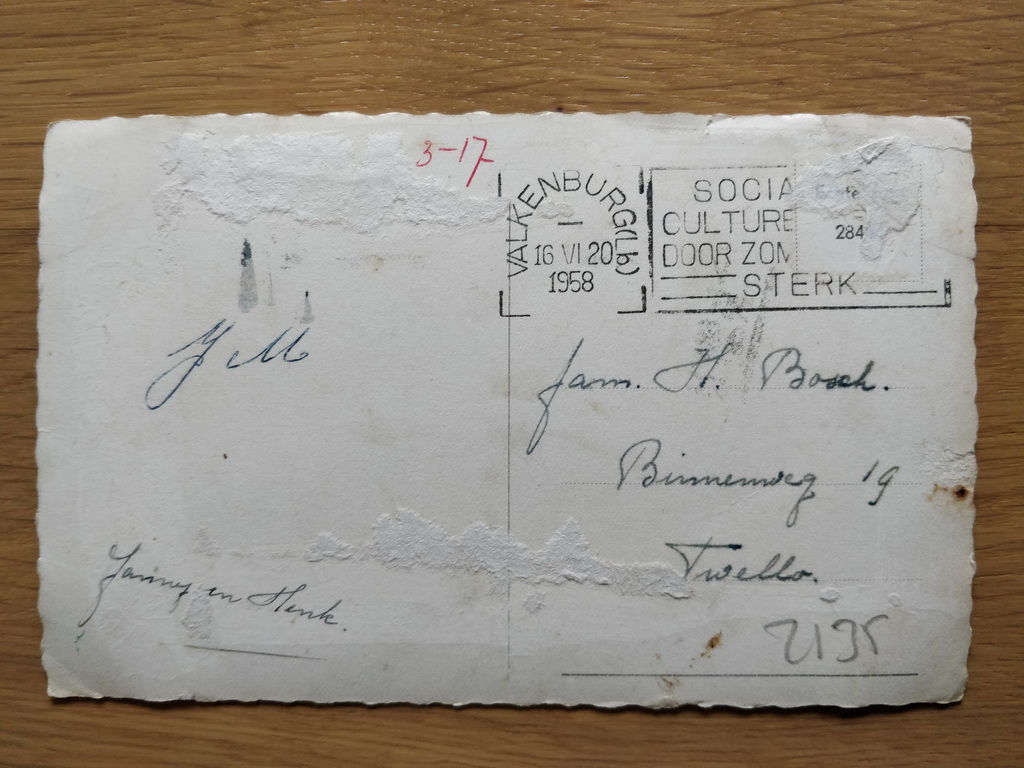 3-17
VALKENBURG (Lb)
16 VI 20
1958
SOCIA
CULTURE
DOOR ZOM
STERK
284
fam. H. Bosch.
Binnenweg 19
Twello.
2135
en Henk.